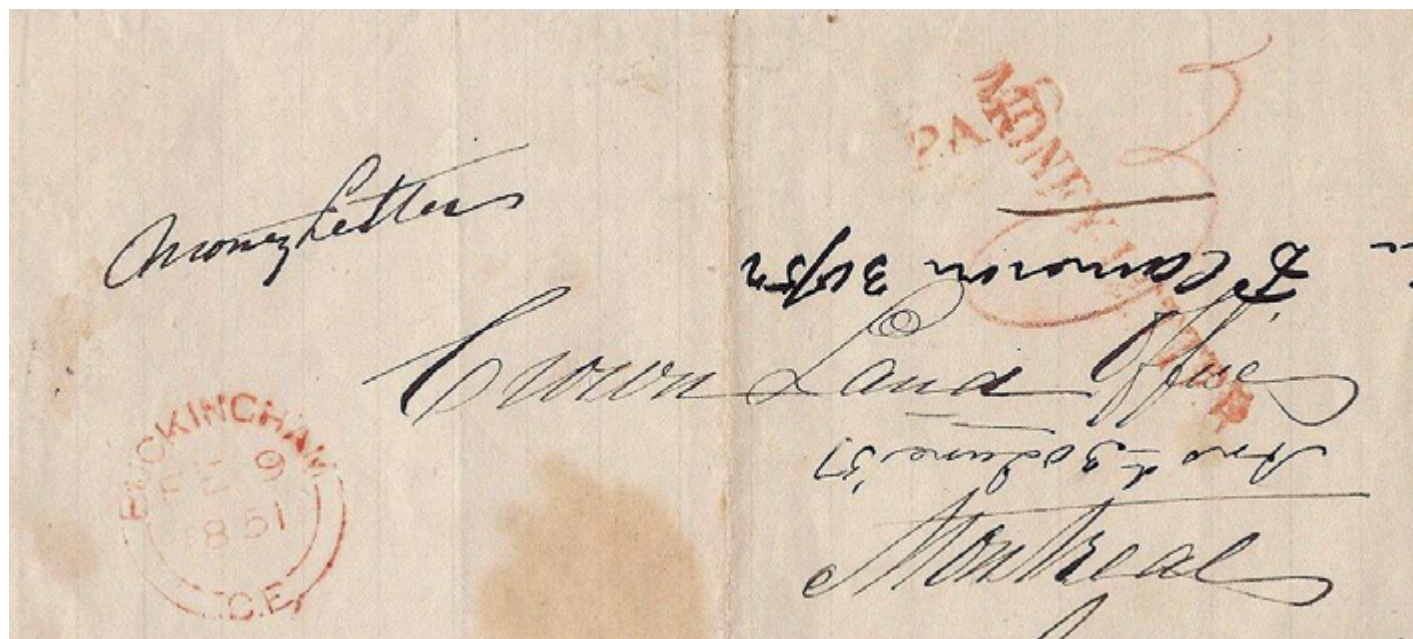 Money Letter
PAID
MONEY LETTER
3
D Cameron
Crown Land Office
Montreal
BUCKINGHAM
FE 9
1851
C.E.